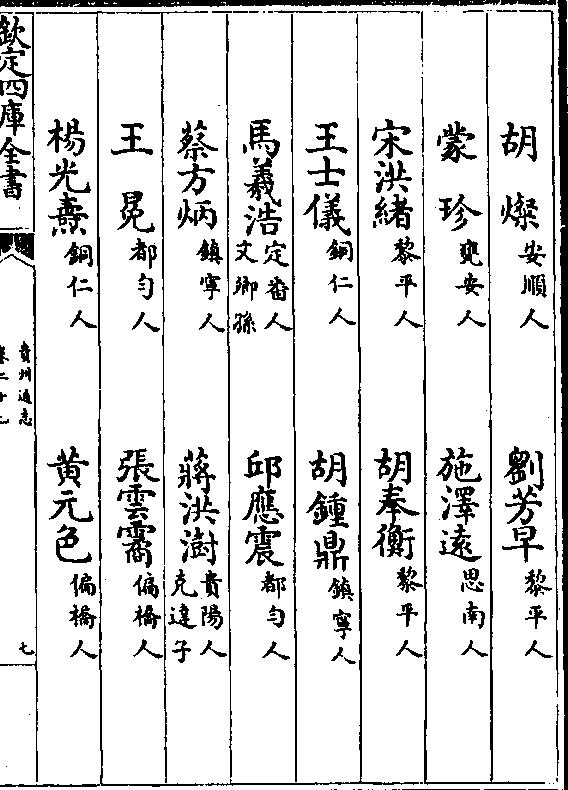 胡燦安順人 劉芳早黎平人
蒙珍甕安人 施澤遠思南人
宋洪緒黎平人 胡奉衡黎平人
王士儀銅仁人 胡鍾鼎鎮寧人
馬羲浩定番人文卿孫 邱應震都勻人
蔡方炳鎮寧人 蔣洪澍貴陽人克逹子
王冕都勻人 張雲鸞偏橋人
楊光燾銅仁人 黄元色偏橋人
欽定四庫全書
貴州通志
卷二十七
七